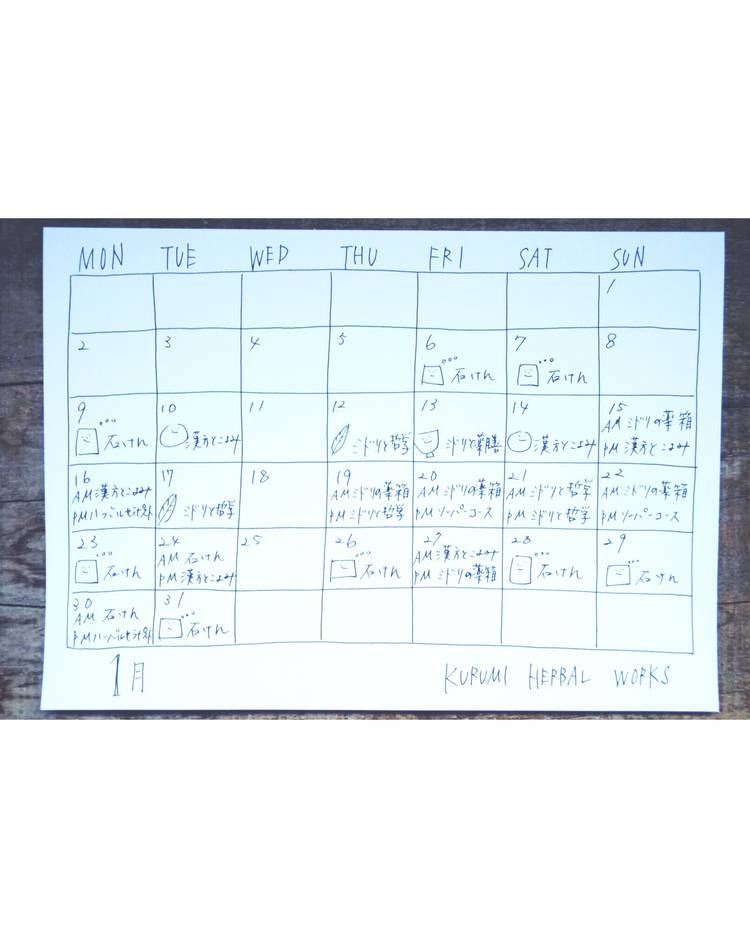 MON TUE WED THU FRI SAT SUN
1
2 3 4 5 6 7 8
石けん 石けん
9 10 11 12 13 14 15
石けん 漢方とこよみ ミドリと哲学 ミドリと薬膳 漢方とこよみ AM ミドリの薬箱
PM 漢方とこよみ
16 17 18 19 20 21 22
AM 漢方とこよみ ミドリと哲学 AM ミドリの薬箱 AM ミドリの薬箱 AM ミドリと哲学 AM ミドリの薬箱
PM ハーバルセラピスト PM ミドリと哲学 PM ソーパーコース PM ミドリと哲学 PM ソーパーコース
23 24 25 26 27 28 29
石けん AM 石けん 石けん AM 漢方とこよみ 石けん 石けん
PM 漢方とこよみ PM ミドリの薬箱
30 31
AM 石けん 石けん
PM ハーバルセラピスト
1月 KURUMI HERBAL WORKS